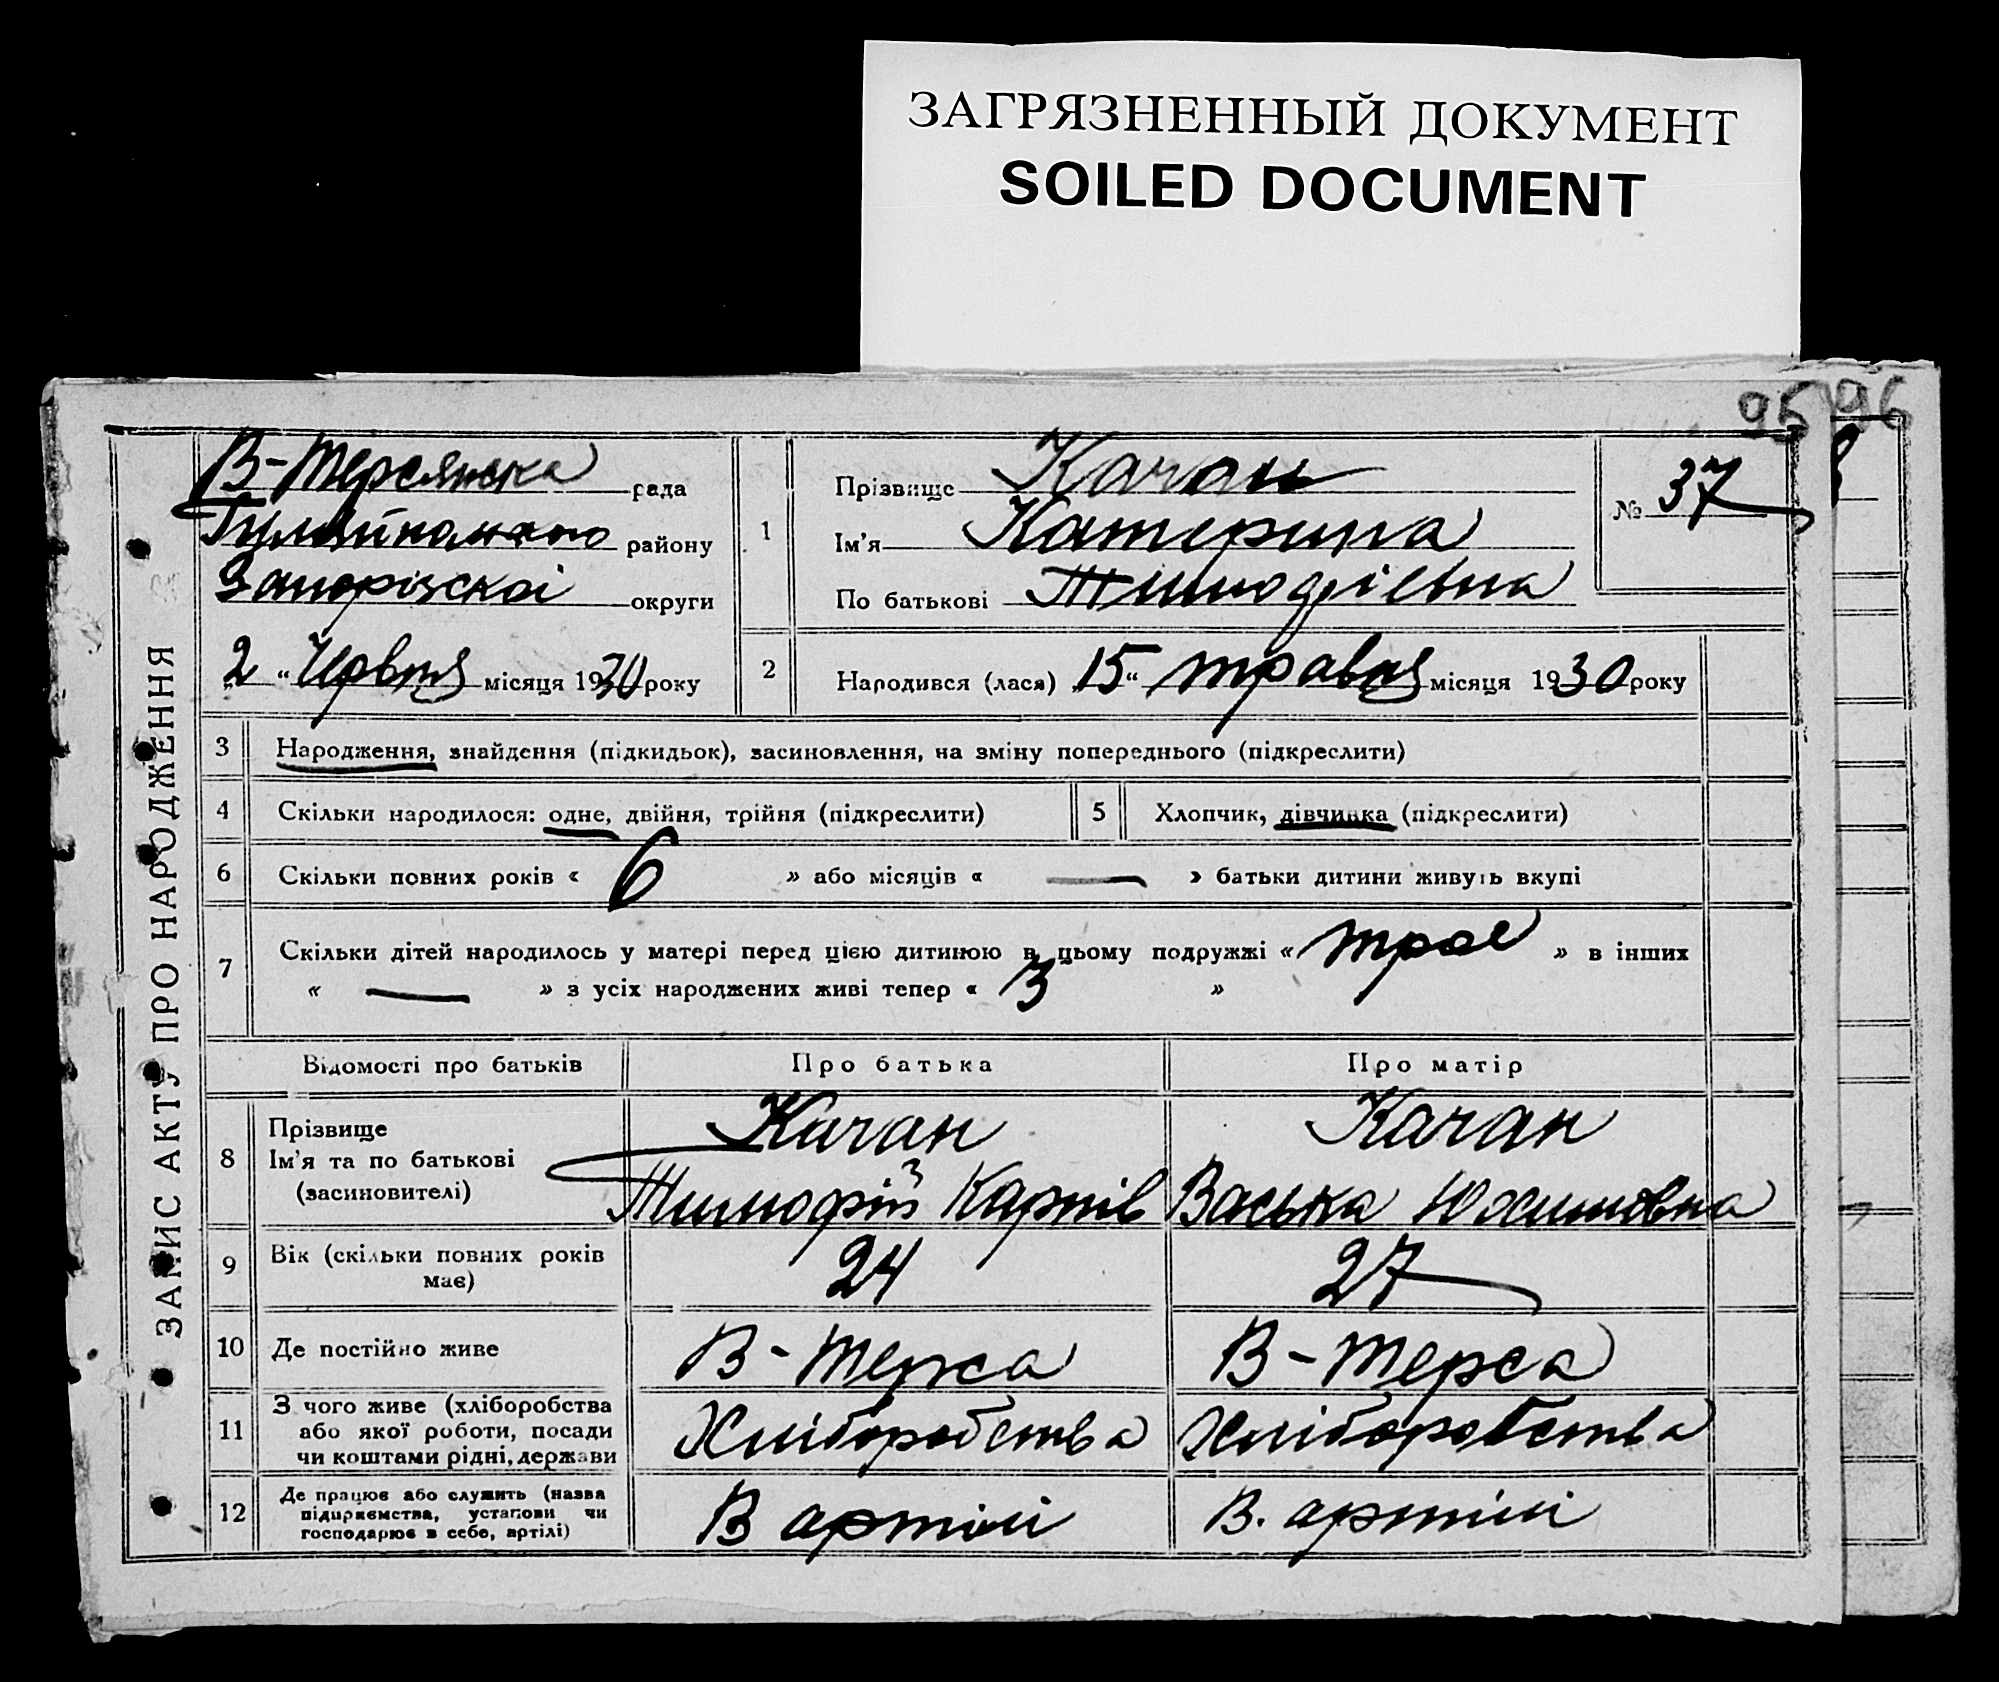 ЗАГРЯЗНЕННЫЙ ДОКУМЕНТ
SOILED DOCUMENT
95 96
ЗАПИС АКТУ ПРО НАРОДЖЕННЯ
В-Терсянська рада
Гуляйпольського району
Запорізської округи
2 " Червня місяця 1930 року
1
Прізвище Качан
Ім'я Катерина
По батькові Тимофіївна
№ 37
2
Народився (лася) 15 " травня місяця 1930 року
3 Народження, знайдення (підкидьок), засиновлення, на зміну попереднього (підкреслити)
4 Скільки народилося: одне, двійня, трійня (підкреслити)
5 Хлопчик, дівчинка (підкреслити)
6 Скільки повних років « 6 » або місяців « — » батьки дитини живуть вкупі
7 Скільки дітей народилось у матері перед цією дитиною в цьому подружжі « троє » в інших
« — » з усіх народжених живі тепер « 3 »
Відомості про батьків Про батька Про матір
8 Прізвище
Ім'я та по батькові
(засиновителі)
Качан
Тимофій Карпів
Качан
Васька Юхимовна
9 Вік (скільки повних років
має)
24 27
10 Де постійно живе В-Терса В-Терса
11 З чого живе (хліборобства
або якої роботи, посади
чи коштами рідні, держави
Хліборобства Хліборобства
12 Де працює або служить (назва
підприємства, установи чи
господарює в себе, артілі)
В артілі В. артілі